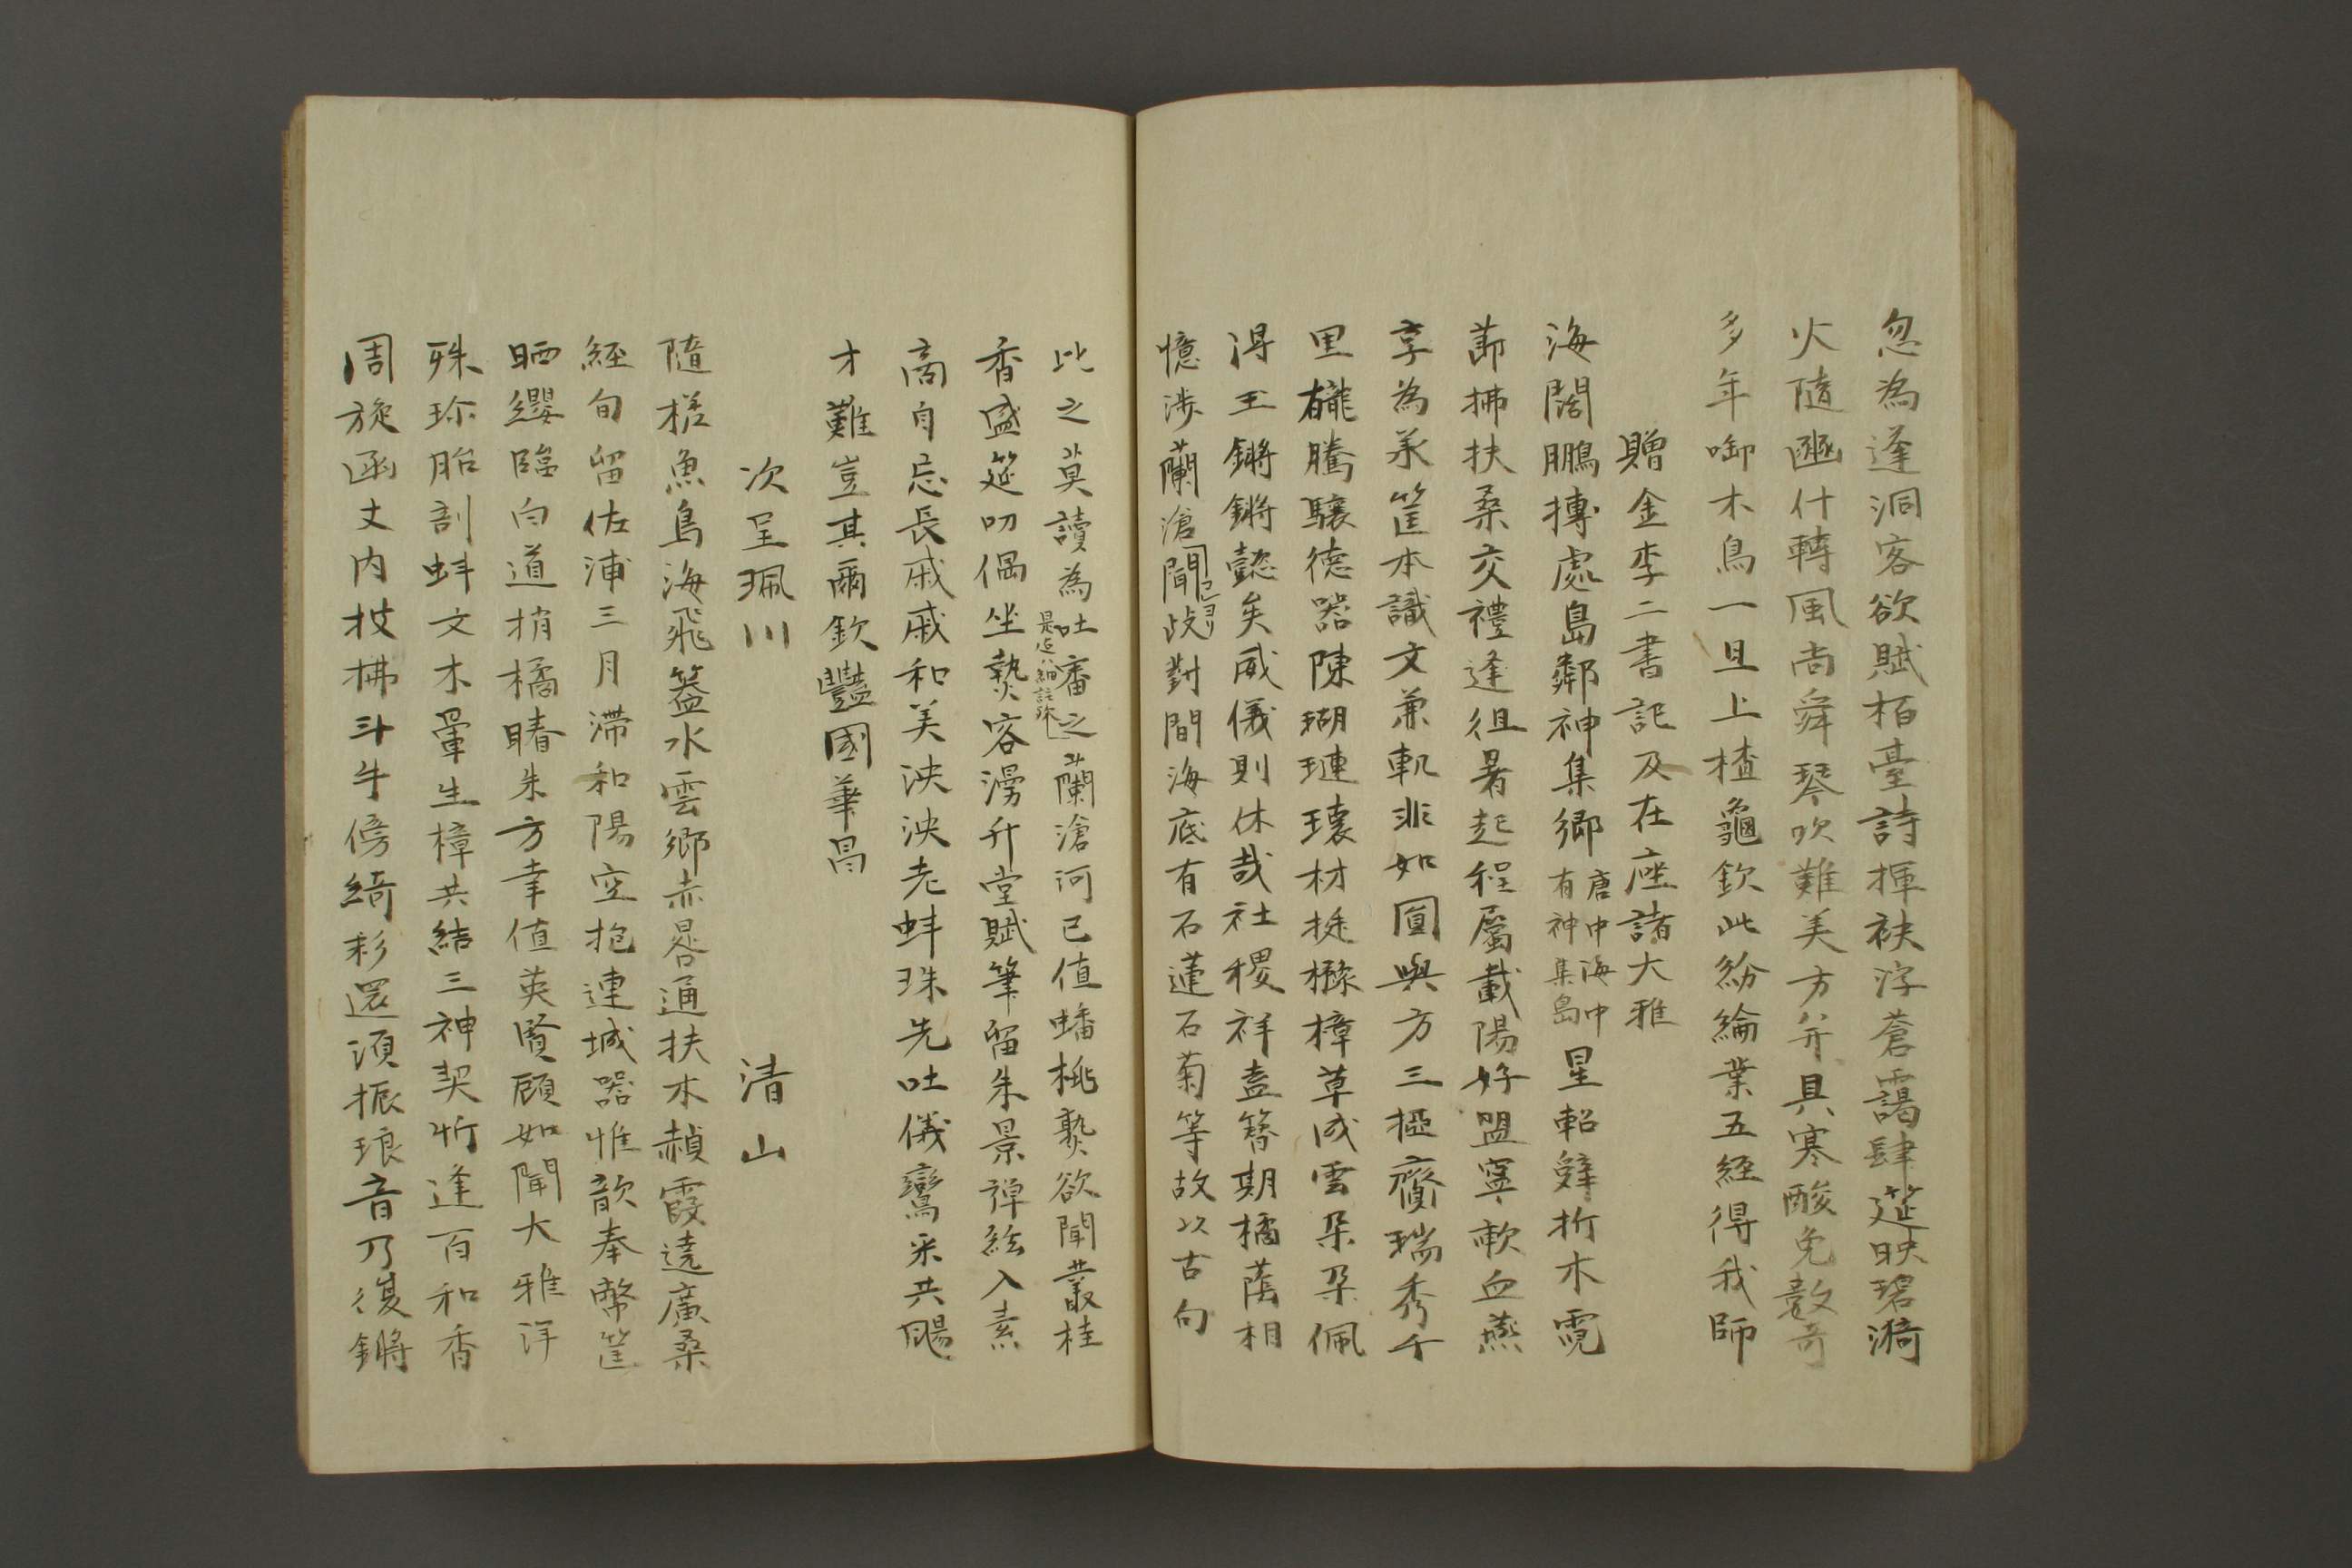 忽為蓬洞客欲賦栢臺詩揮袂浮蒼靄肆筵映碧漪
火隨函什轉風尚舜琴吹難美方并具寒酸免彀奇
多年啣木鳥一旦上楂龜欽此紛綸業五經得我師
贈金李二書記及在座諸大雅
海闊鵬摶處島鄰神集鄉唐中海中有神集島星軺辞析木霓
節拂扶桑交禮逢徂暑起程屬載陽好盟寧歃血燕
享為承筐本識文兼軌非如圓與方三極齊瑞秀千
里巃騰驤德器陳瑚璉瓌材挺櫲樟草成雲朶朶佩
得玉鏘鏘懿矣威儀則休哉社稷祥盍簪期橘蔭相
憶涉蘭滄聞歧對間海底有石蓮石菊等故以古句
比之莫讀為吐審之蘭滄河已值蟠桃爇欲聞叢桂
香盛筵叨偶坐爇容漫升堂賦筆留朱景禪絃入素
商自忘長戚戚和美泱泱老蚌珠先吐儀鸞采共颺
才難豈其爾欽豔國華昌
次呈珮川 清山
隨槎魚鳥海飛蓋水雲鄉赤晷通扶木赬霞遶廣桑
經旬留佐浦三月滯和陽空抱連城器惟歆奉幣筐
晒纓臨白道梢橘睶朱方幸值英賢顧如聞大雅洋
殊珎胎剖蚌文木暈生樟共結三神契忻逢百和香
周旋函丈内杖拂斗牛傍綺彩還須振琅音乃復鏘